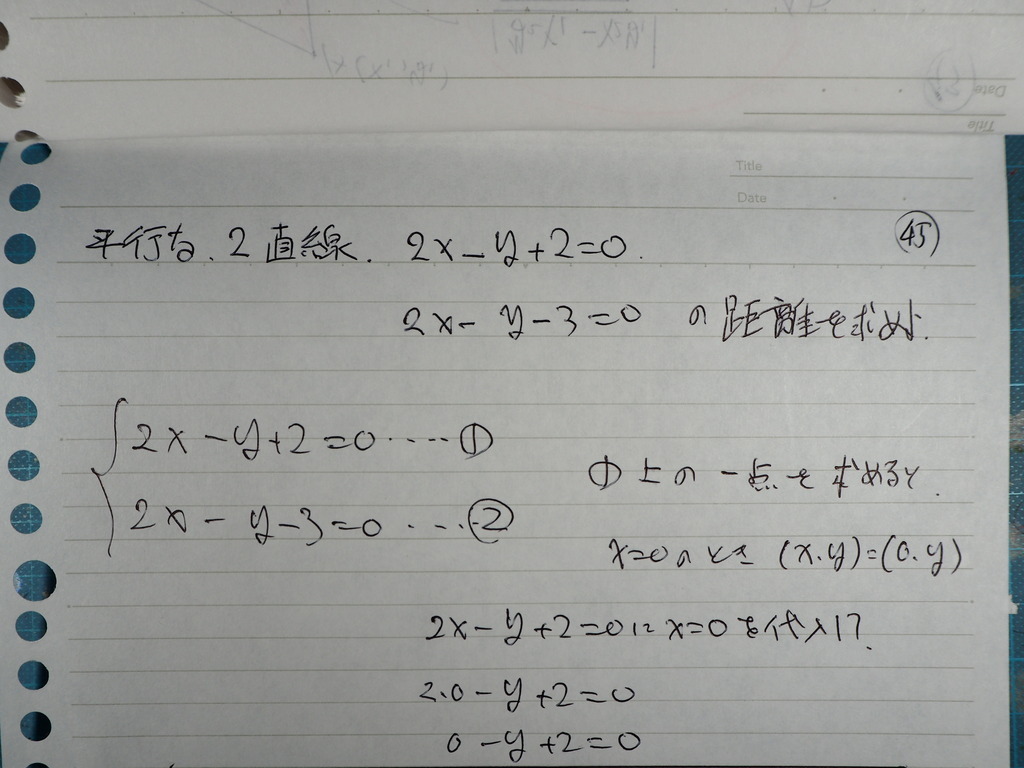 Title
Date
平行な、2直線. 2x-y+2=0. ㊺
2x-y-3=0 の距離を求めよ.
2x-y+2=0 ····· ①
2x-y-3=0 ····· ②
①上の一点を求めると.
x=0のとき (x.y)=(0.y)
2x-y+2=0にx=0を代入
2.0-y+2=0
0-y+2=0